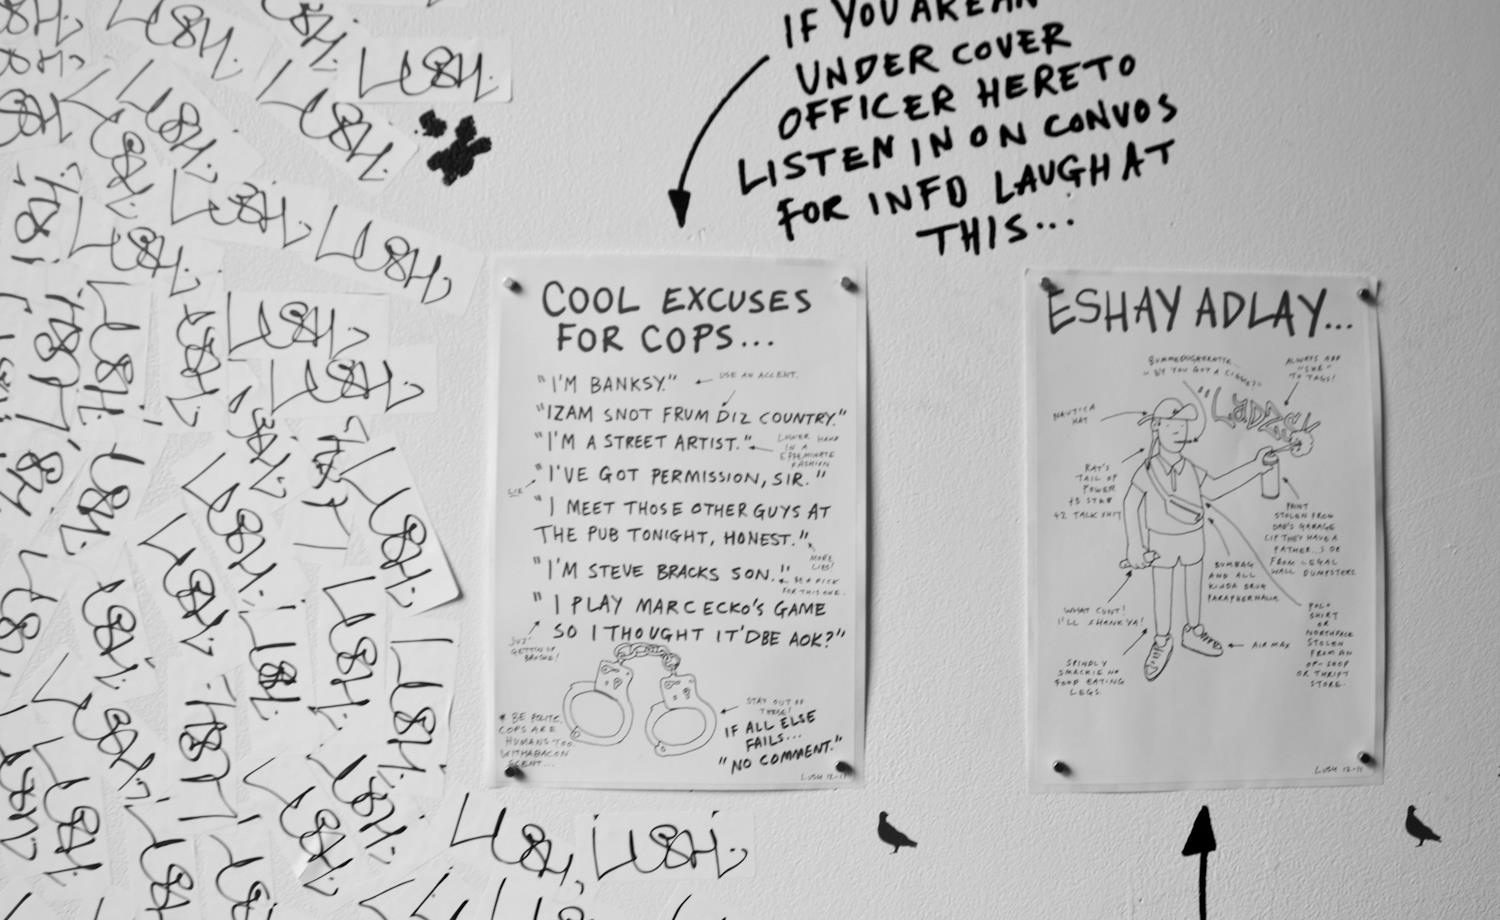 IF YOU ARE AN
UNDER COVER
OFFICER HERE TO
LISTEN IN ON CONVOS
FOR INFO LAUGH AT
THIS...
COOL EXCUSES
FOR COPS...
"I'M BANKSY."
USE AN ACCENT.
"IZAM SNOT FRUM DIZ COUNTRY."
"I'M A STREET ARTIST."
LOWER HAND
IN A
EFFEMINATE
FASHION
"I'VE GOT PERMISSION, SIR."
SIR
"I MEET THOSE OTHER GUYS AT
THE PUB TONIGHT, HONEST."
MORE
LIES!
"I'M STEVE BRACKS SON."
BE A DICK
FOR THIS ONE.
"I PLAY MARC ECKO'S GAME
SO I THOUGHT IT'D BE AOK?"
GETTIN UP
STAY OUT OF
THESE!
* BE POLITE.
COPS ARE
HUMANS TOO.
WITH A BACON
SCENT...
IF ALL ELSE
FAILS...
"NO COMMENT."
LUSH 12-11
ESHAY ADLAY...
"BY YOU GOT A CIGGE?"
ALWAYS ADD
TO TAGS!
"LADZSK
NAUTICA
HAT
RAT'S
TAIL OF
POWER
+5 STAB
+2 TALK SHIT
PAINT
STOLEN FROM
DAD'S GARAGE
(IF THEY HAVE A
FATHER...) OR
FROM LEGAL
WALL DUMPSTERS
BUMBAG
AND ALL
KINDA DRUG
PARAPHERNALIA
WHAT CUNT!
I'LL SHANK YA!
POLO
SHIRT
OR
NORTHFACE
STOLEN
FROM AN
OP-SHOP
OR THRIFT
STORE.
AIR MAX
SPINDLY
SMACKIE NO
FOOD EATING
LEGS.
LUSH 12-11